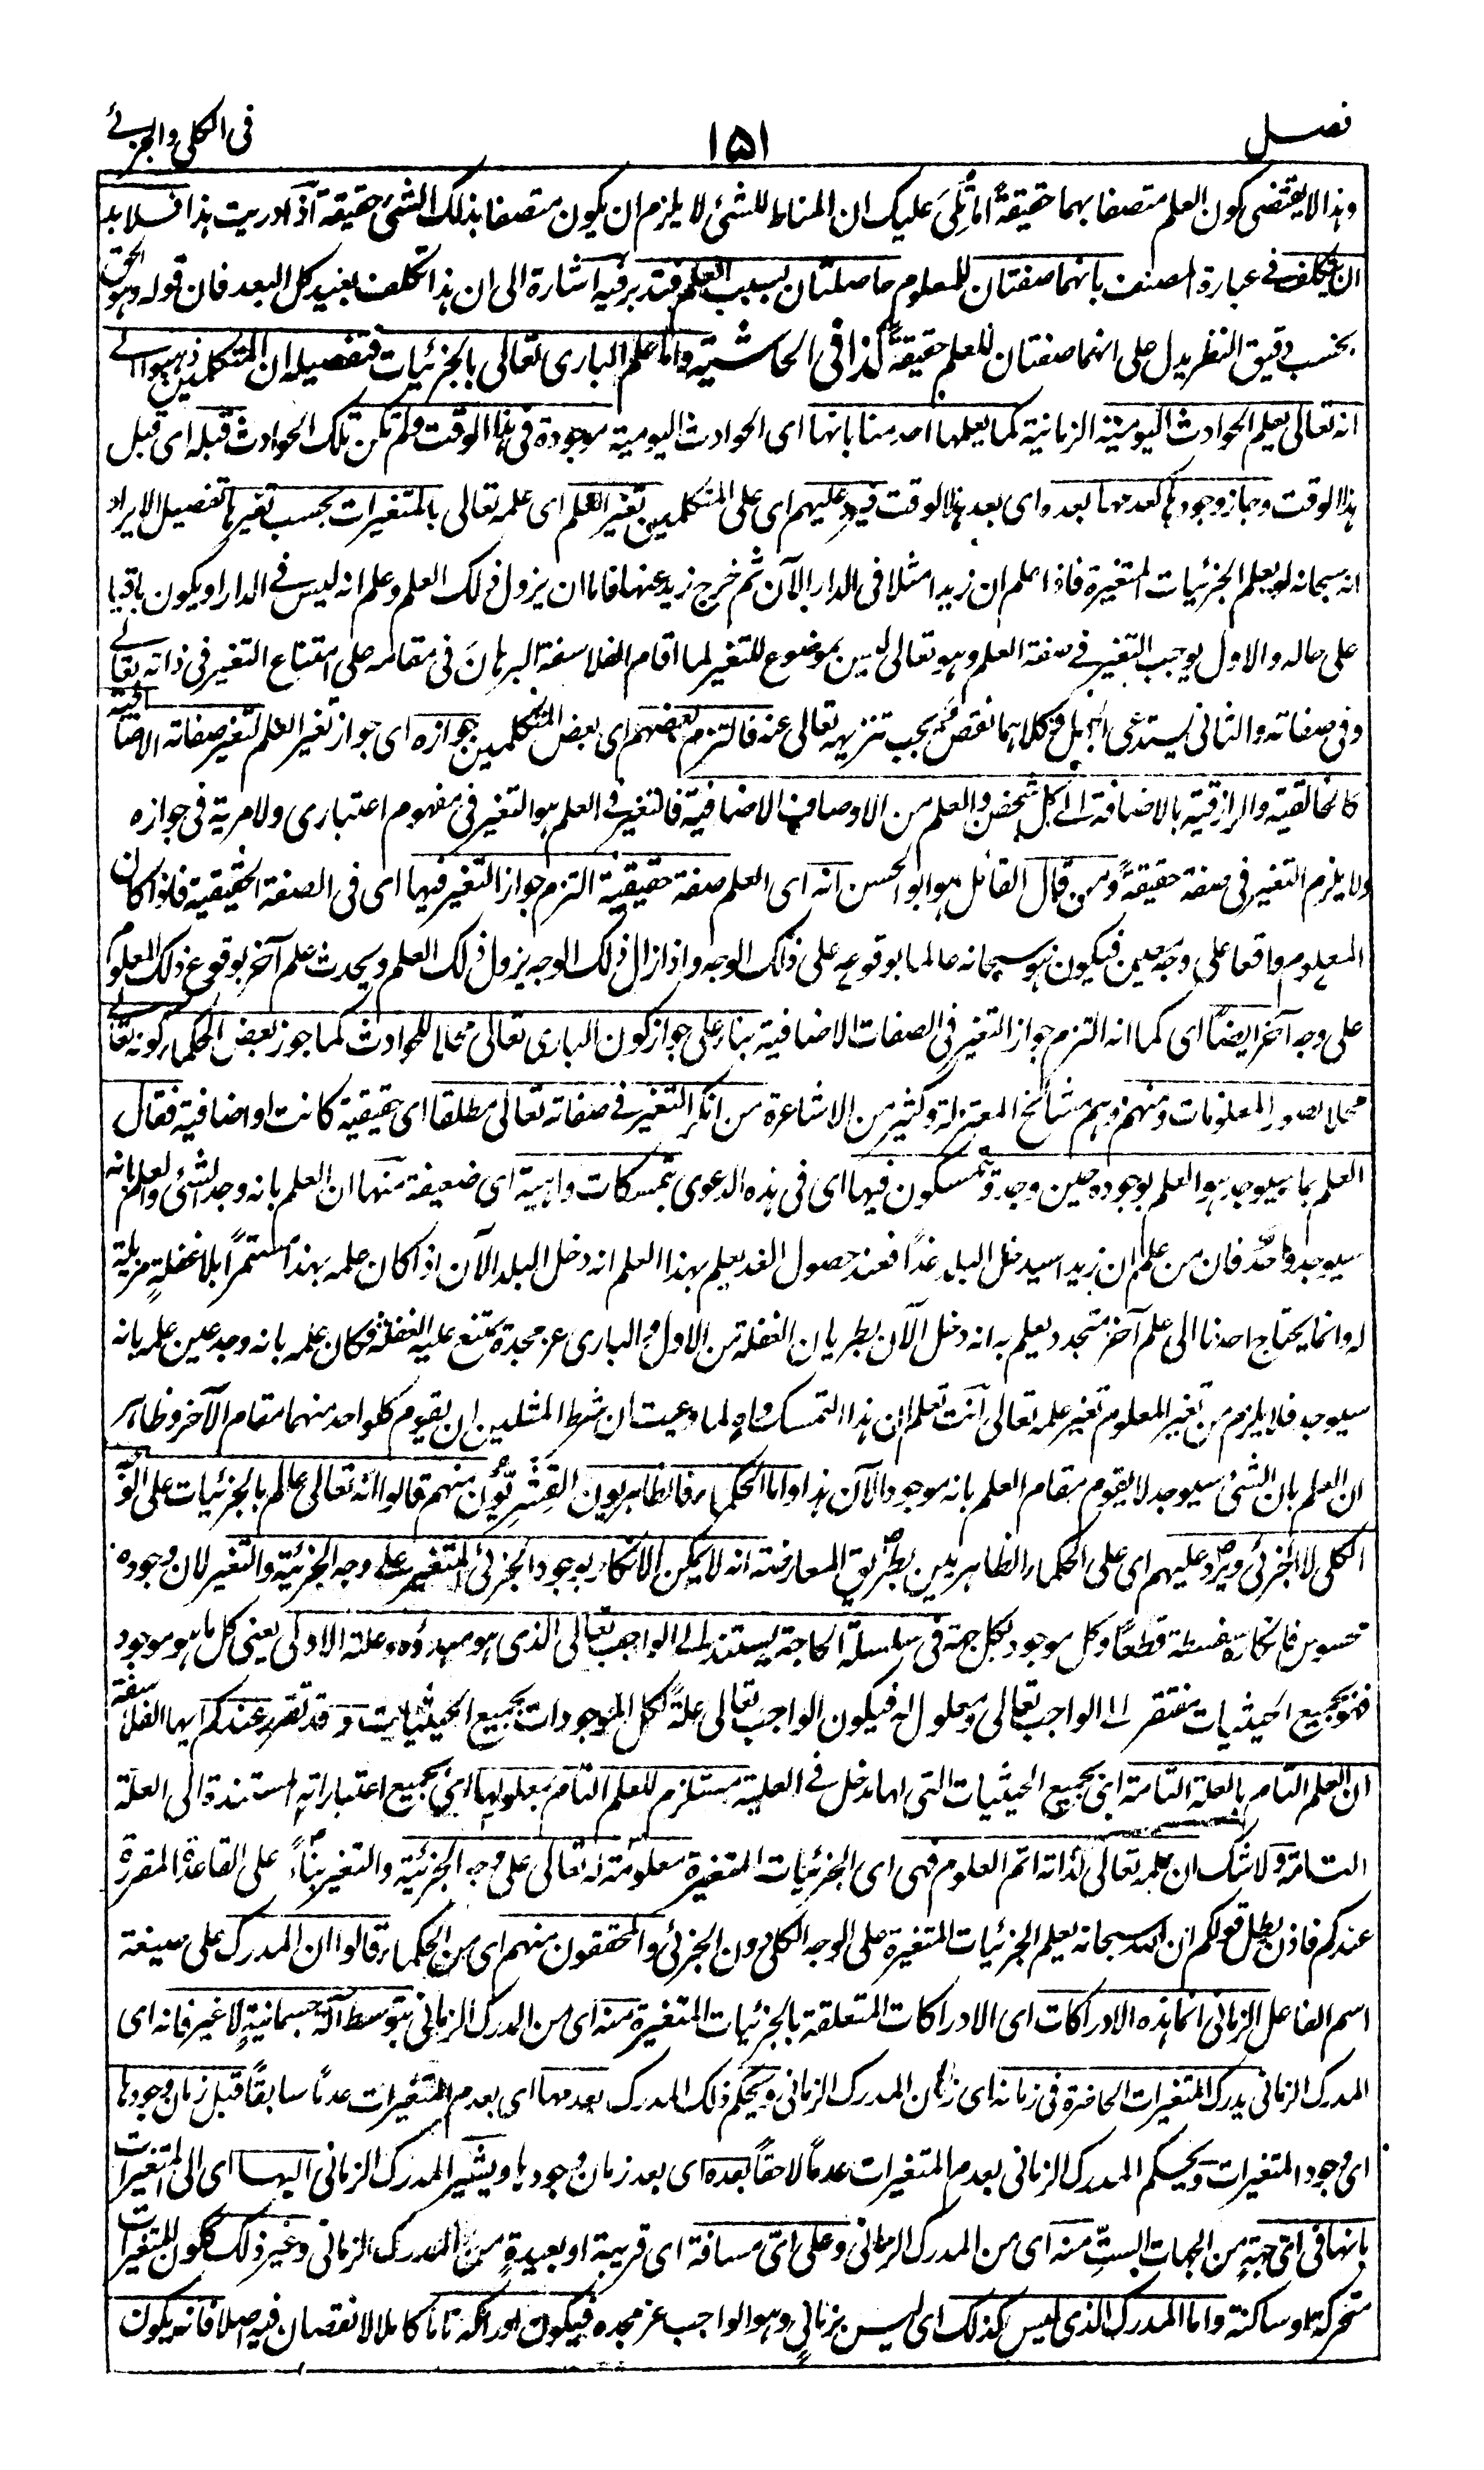 فصل ١٥١ فى الكلى والجزئے
وہذا لا یقتضی کون العلم متصفا بہما حقیقۃً اما تُلِیَ علیک ان المناط للشئ لا یلزم ان یکون متصفا بذلک الشئ حقیقۃ اذا دریت ہذا فلا بد
ان یتکلف فے عبارۃ المصنف بانہما صفتان للمعلوم حاصلتان بسبب العلم فتدبر فیہ اشارۃ الی ان ہذا تکلف بعید کل البعد فان قولہ وہو الحق
بحسب دقیق النظر یدل علی انہما صفتان للعلم حقیقۃً کذا فی الحاشیۃ واما علم الباری تعالی بالجزئیات فتفصیلہ ان المتکلمین ذہبوا الے
انہ تعالی یعلم الحوادث الیومیۃ الزمانیۃ کما یعلمہا احد منا بانہا ای الحوادث الیومیۃ موجودۃ فی ہذا الوقت ولم تکن تلک الحوادث قبلہ ای قبل
ہذا الوقت وجاز وجودہا کعدمہا بعدہ ای بعد ہذا الوقت فیرد علیہم ای علی المتکلمین تغیر العلم ای علمہ تعالی بالمتغیرات بحسب تغیرہا تفصیل الایراد
انہ سبحانہ لو یعلم الجزئیات المتغیرۃ فاذا علم ان زیدا مثلا فی الدار الآن ثم خرج زید عنہا فاما ان یزول ذلک العلم وعلم انہ لیس فے الدار او یکون باقیا
علی حالہ والاول یوجب التغیر فے صفۃ العلم وہو تعالی لیس بموضوع للتغیر لما اقام الفلاسفۃ البرہانَ فی مقامہ علی امتناع التغیر فی ذاتہ تعالے
وفی صفاتہ والثانی یستدعی الجہل وکلاہما نقص یجب تنزیہہ تعالی عنہ فالتزم بعضہم ای بعض المتکلمین جوازہ ای جواز تغیر العلم لتغیر صفاتہ الاضافیۃ
کالخالقیۃ والرازقیۃ بالاضافۃ الے کل شخص والعلم من الاوصاف الاضافیۃ فالتغیر فے العلم ہو التغیر فی مفہوم اعتباری ولا مریۃ فی جوازہ
ولا یلزم التغیر فی صفۃ حقیقۃً ومن قال القائل ہو ابو الحسن انہ ای العلم صفۃ حقیقیۃ التزم جواز التغیر فیہا ای فی الصفۃ الحقیقیۃ فاذا کان
المعلوم واقعا علی وجہ معین فیکون ہو سبحانہ عالما بوقوعہ علی ذلک الوجہ واذا زال ذلک الوجہ یزول ذلک العلم ویحدث علم آخر بوقوع ذلک المعلوم
علی وجہ آخر ایضًا ای کما انہ التزم جواز التغیر فی الصفات الاضافیۃ بناء علی جواز کون الباری تعالی محلا للحوادث کما جوز بعض الحکماء کونہ تعالے
محلا لصور المعلومات ومنہم وہم مشائخ المعتزلۃ وکثیر من الاشاعرۃ من انکر التغیر فے صفاتہ تعالی مطلقا ای حقیقیۃ کانت او اضافیۃ فقال
العلم بما سیوجد ہو العلم بوجودہ حین وجد ویتمسکون فیہا ای فی ہذہ الدعوی بتمسکات واہیۃ ای ضعیفۃ منہا ان العلم بانہ وجد الشئ والعلم بانہ
سیوجد واحدٌ فان من علم ان زیدا سیدخل البلد غدًا فعند حصول الغد یعلم بہذا العلم انہ دخل البلد الآن اذا کان علمہ بہذا مستمرًا بلا غفلۃٍ مزیلۃ
لہ وانما یحتاج احدنا الی علم آخر متجدد یعلم بہ انہ دخل الآن بطریان الغفلۃ من الاول والباری عز مجدہ یمتنع علیہ الغفلۃ فکان علمہ بانہ وجد عین علمہ بانہ
سیوجد فلا یلزم من تغیر المعلوم تغیر علمہ تعالی انت تعلم ان ہذا التمسک واہٍ لما وعیت ان شرط المثلین ان یقوم کلواحد منہما مقام الآخر وظاہر
ان العلم بان الشئ سیوجد لا یقوم مقام العلم بانہ موجود الآن ہذا واما الحکماء فالظاہریون القِشریّون منہم قالوا انہ تعالی عالم بالجزئیات علی الوجہ
الکلی لا الجزئی ویرد علیہم ای علی الحکماء الظاہریین بطریق المعارضۃ انہ لا یمکن الانکار بوجود الجزئی المتغیر علی وجہ الجزئیۃ والتغیر لان وجودہ
محسوس فانکارہ سفسطۃ قطعًا وکل موجود بکل جہۃ فی سلسلۃ الحاجۃ یستند الے الواجب تعالی الذی ہو مبدؤہ وعلتہ الاولی یعنی کل ما ہو موجود
فہو بجمیع الحیثیات مفتقر الے الواجب تعالی ومعلول لہ فیکون الواجب تعالی علۃً لکل الموجودات بجمیع الحیثیات وقد تقرر عندکم ایہا الفلاسفۃ
ان العلم التام بالعلۃ التامۃ ای بجمیع الحیثیات التی لہا مدخل فے العلیۃ مستلزم للعلم التام بمعلولہا ای بجمیع اعتباراتہ المستندۃ الی العلۃ
التامۃ ولا شک ان علمہ تعالی لذاتہ اتم العلوم فہی ای الجزئیات المتغیرۃ معلومۃ لہ تعالی علی وجہ الجزئیۃ والتغیر بناءً علی القاعدۃ المقررۃ
عندکم فاذن بطل قولکم ان اللہ سبحانہ یعلم الجزئیات المتغیرۃ علی الوجہ الکلی دون الجزئی والمحققون منہم ای من الحکماء قالوا ان المدرک علی صیغۃ
اسم الفاعل الزمانی انما ہذہ الادراکات ای الادراکات المتعلقۃ بالجزئیات المتغیرۃ منہ ای من المدرک الزمانی بتوسط آلۃ جسمانیۃٍ لا غیر فانہ ای
المدرک الزمانی یدرک المتغیرات الحاضرۃ فی زمانہ ای زمان المدرک الزمانی ویحکم ذلک المدرک بعدمہا ای بعدم المتغیرات عدمًا سابقًا قبل زمان وجودہا
ای وجود المتغیرات ویحکم المدرک الزمانی بعدم المتغیرات عدمًا لاحقًا بعدہ ای بعد زمان وجودہا ویشیر المدرک الزمانی الیہا ای الی المتغیرات
بانہا فی ای جہۃٍ من الجہات الستِّ منہ ای من المدرک الزمانی وعلی ای مسافۃ ای قریبۃ او بعیدۃٍ من المدرک الزمانی وغیر ذلک ککون المتغیرات
متحرکۃ او ساکنۃ واما المدرک الذی لیس کذلک ای لیس بزمانی وہو الواجب عز مجدہ فیکون ادراکہ تاما کاملا لا نقصان فیہ اصلا فانہ یکون